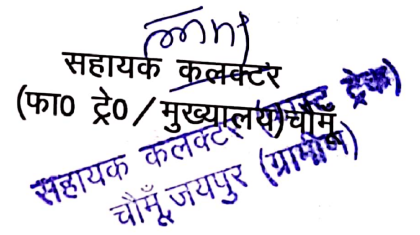 सहायक कलक्टर
(फा0 ट्रे0/मुख्यालय)चौमूँ
सहायक कलक्टर (फास्ट ट्रेक)
चौमूँ, जयपुर (ग्रामीण)